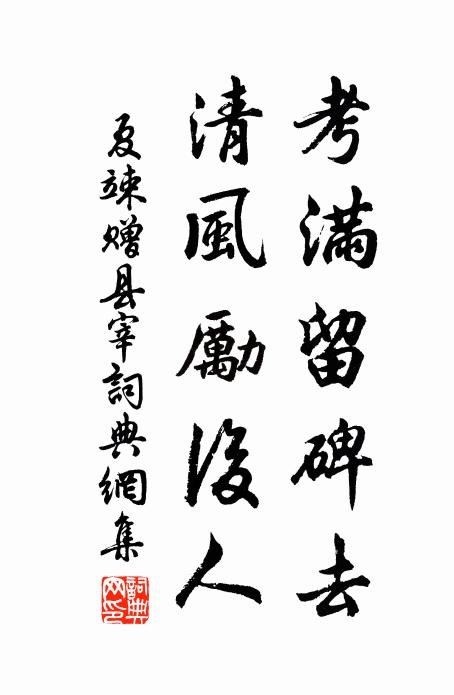 考滿留碑去
清風勵後人
夏竦贈县宰詞典網集
詞典網印